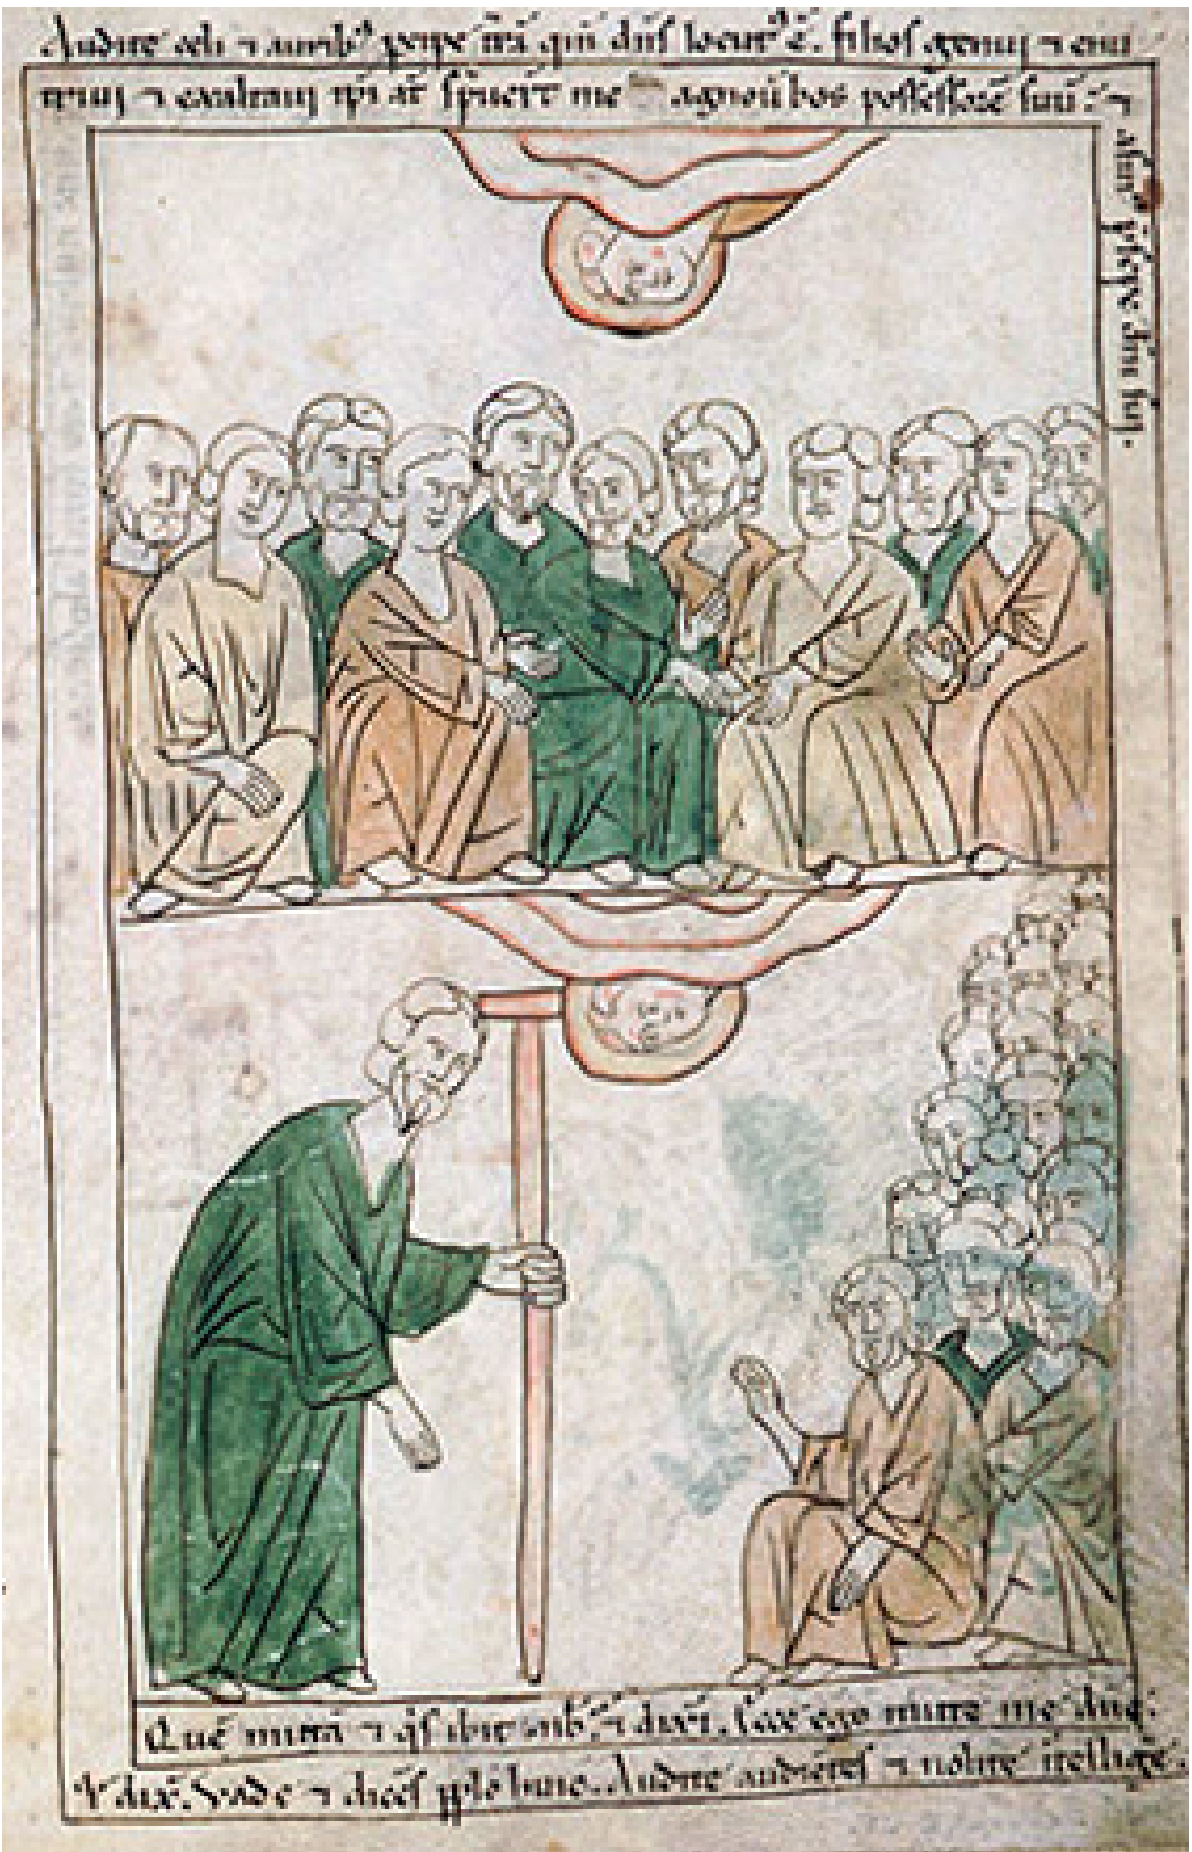 Audite celi ⁊ aurib⁹ pcipe t̄rā qm̄ dn̄s locut⁹ ē. filios genui ⁊ enu
triui ⁊ exaltaui ip̄i at̄ sp̄uer̄t me agnouit bos possessorē suū: ⁊
asin⁹ p̄sepe dn̄i sui.
Quē mittā ⁊ q̄s ibit nob̄ ⁊ dixi. ecce ego mitte me dn̄e:
⁊ dix̄. Vade ⁊ dices pp̄lo huic. Audite audiētes ⁊ nolite ītelligē.